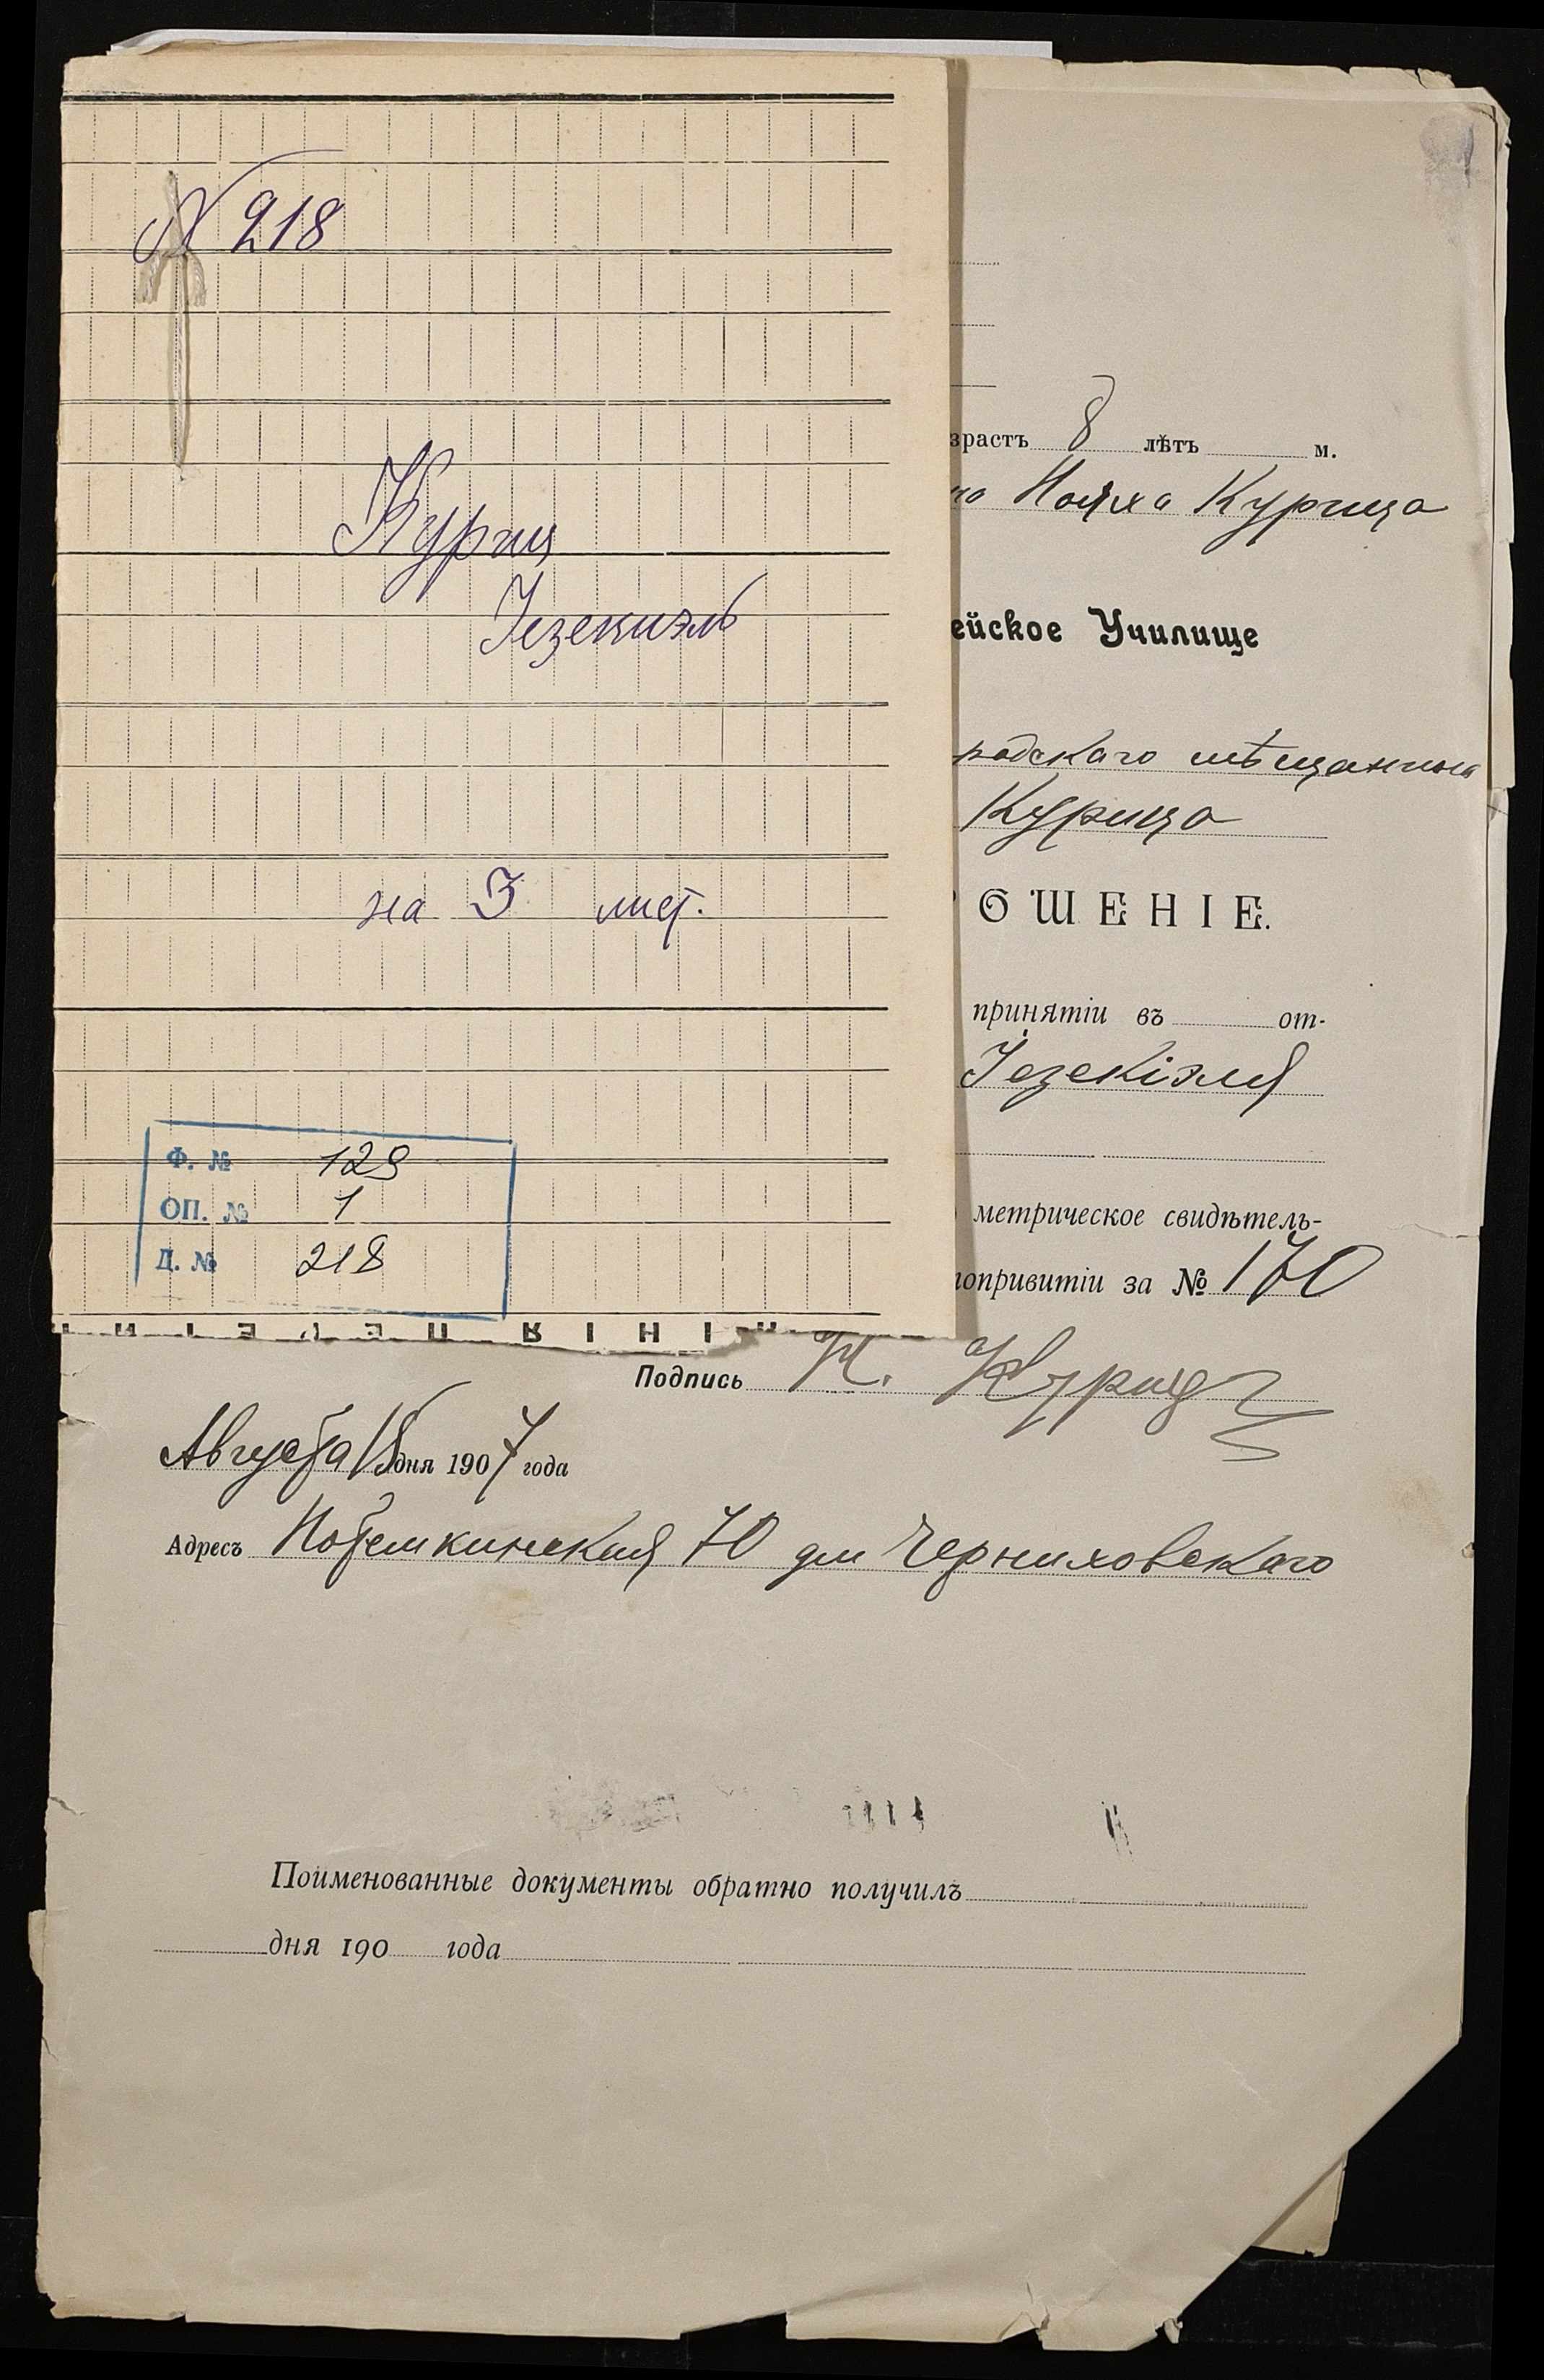 N 218
Куриц
Іезекиэль
на 3 лист.
Ф. № 129
ОП. № 1
Д. № 218
зрастъ 8 лѣтъ м.
Курица
ейское Училище
родскаго мѣщанина
Курица
ОШЕНІЕ.
принятіи въ от-
Іезекіэля
метрическое свидѣтель-
попривитіи за № 170
Подпись Н. Куриц
Августа 18 дня 1907 года
Адресъ Потемкинская 70 дом Черниховскаго
Поименованные документы обратно получилъ
дня 190 года